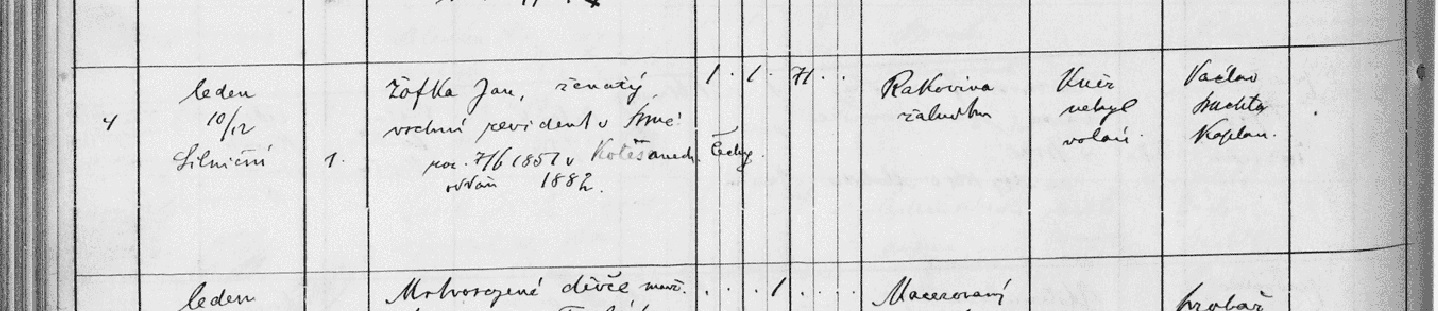 4
leden
10/12
Silniční
1.
Žofka Jan, ženatý,
vrchní revident v Brně
nar. 7/6 1851 v Košťanech. Čechy.
oddán 1882.
1 . 1 . 71 . .
Rakovina
žaludku
Kněz
nebyl
volán.
Václav
kaplan.
leden
Mrtvorozené děvče manž.
. . . . 1 . . . .
Macerovaný
hrobař